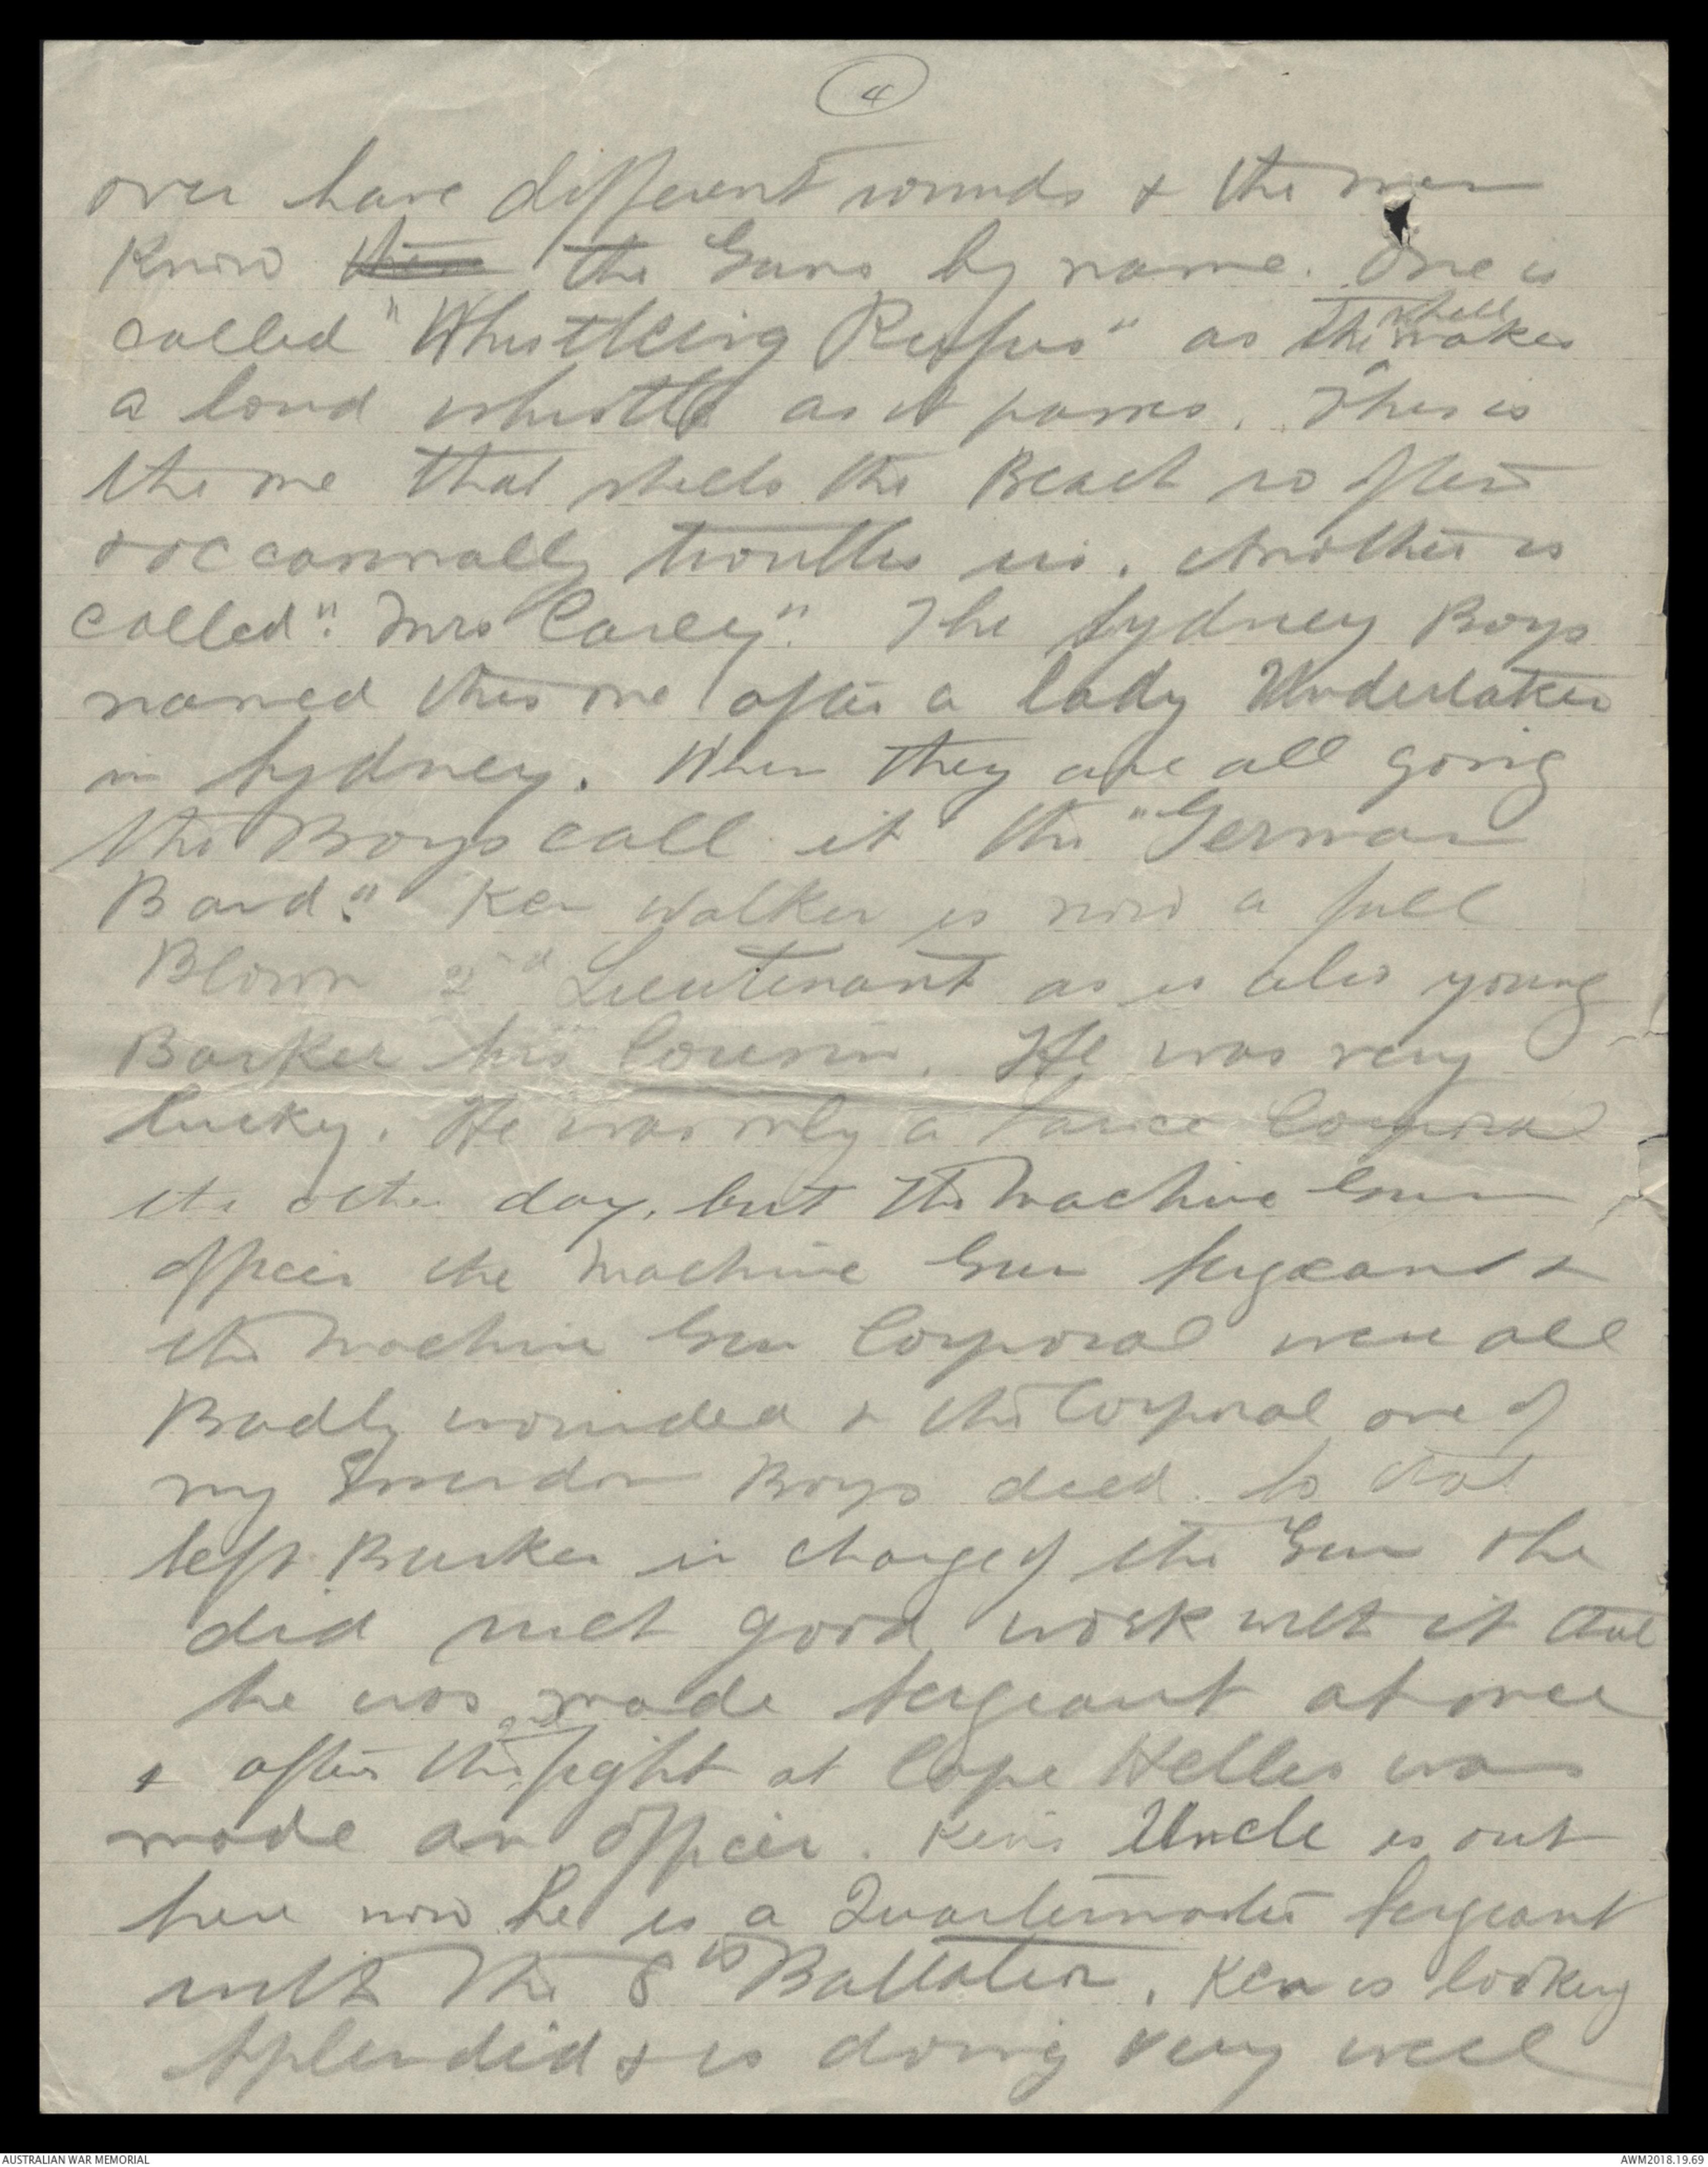 4
over have different sounds & the men
know them the Guns by name. One is
called "Whistleing Rufus" as the shell makes
a loud whistle as it passes. This is
the one that shells the Beach so often
& occasionally troubles us. Another is
called "Mrs Carey". The Sydney Boys
named this one after a lady Undertaker
in Sydney. When they are all going
the Boys call it the "German
Band." Ken Walker is now a full
Blown 2nd Lieutenant as is also young
Barker his Cousin. He was very
lucky. He was only a Lance Corporal
the other day, but the Machine Gun
officer the Machine Gun Sergeant &
the Machine Gun Corporal were all
Badly wounded & the Corporal one of
my Boys died. So that
left Barker in charge of the Gun & he
did such good work with it that
he was made Sergeant at once
& after the fight at Cape Helles was
made an officer. Ken's Uncle is out
here now he is a Quartermaster Sergeant
with the 8th Battalion. Ken is looking
splendid & is doing very well
AUSTRALIAN WAR MEMORIAL
AWM2018.19.69